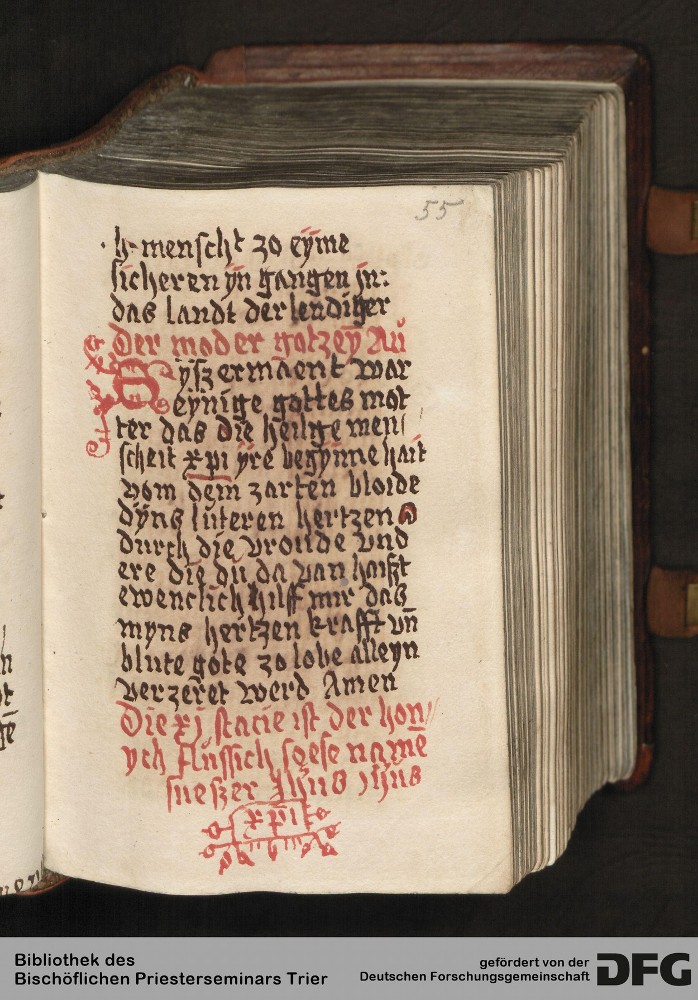 55
· h· menscht zo eÿme
sicheren ÿn gangen jn:
das landt der lendiger
Der moder gotzeÿ Au
ÿsz ermaent war
eynige gottes mot
ter das die heilige men
scheit xp̄i yre begÿnne hait
vom dem zarten bloide
dÿns luteren hertzen
durch die vroude vnd
ere die du da van haißt
ewenclich hilff mir das
myns hertzen krafft vn̄
blute gote zo lobe alleyn
verzeret werd Amen
Die xj stacie ist der hon
ych flussich soese name
sueszer Jhūs Jhūs
xp̄i
Bibliothek des
Bischöflichen Priesterseminars Trier
gefördert von der
Deutschen Forschungsgemeinschaft
DFG